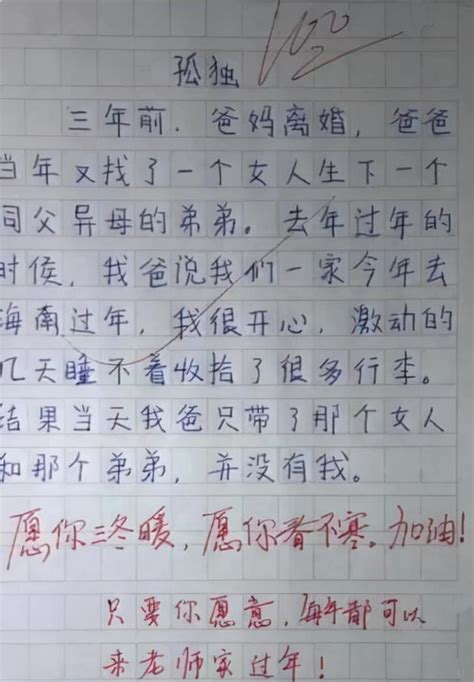 100
孤独
三年前.爸妈离婚,爸爸
当年又找了一个女人生下一个
同父异母的弟弟。去年过年的
时侯,我爸说我们一家今年去
海南过年,我很开心,激动的
几天睡不着收拾了很多行李。
结果当天我爸只带了那个女人
和那个弟弟,并没有我。
愿你三冬暖,愿你春不寒。加油!
只要你愿意,每年都可以
来老师家过年!